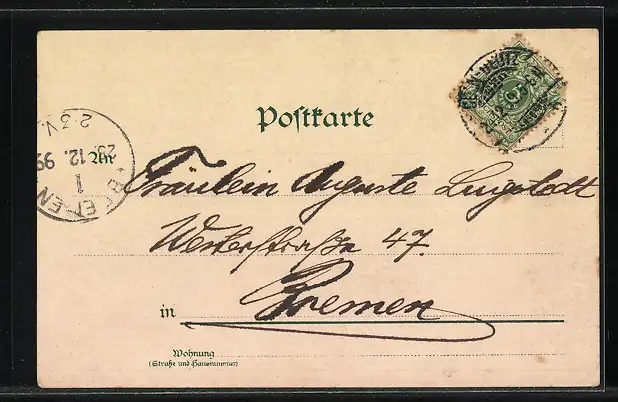 Postkarte
An Fräulein Auguste Lugstedt
Weserstraße 47.
in Bremen
Wohnung
(Straße und Hausnummer)
BREMEN
1
29.12.99
2-3V.